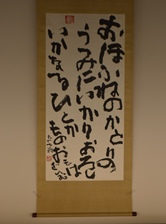 おほふねのかとりの
うみにいかりおろし
いかなるひとか
ものお